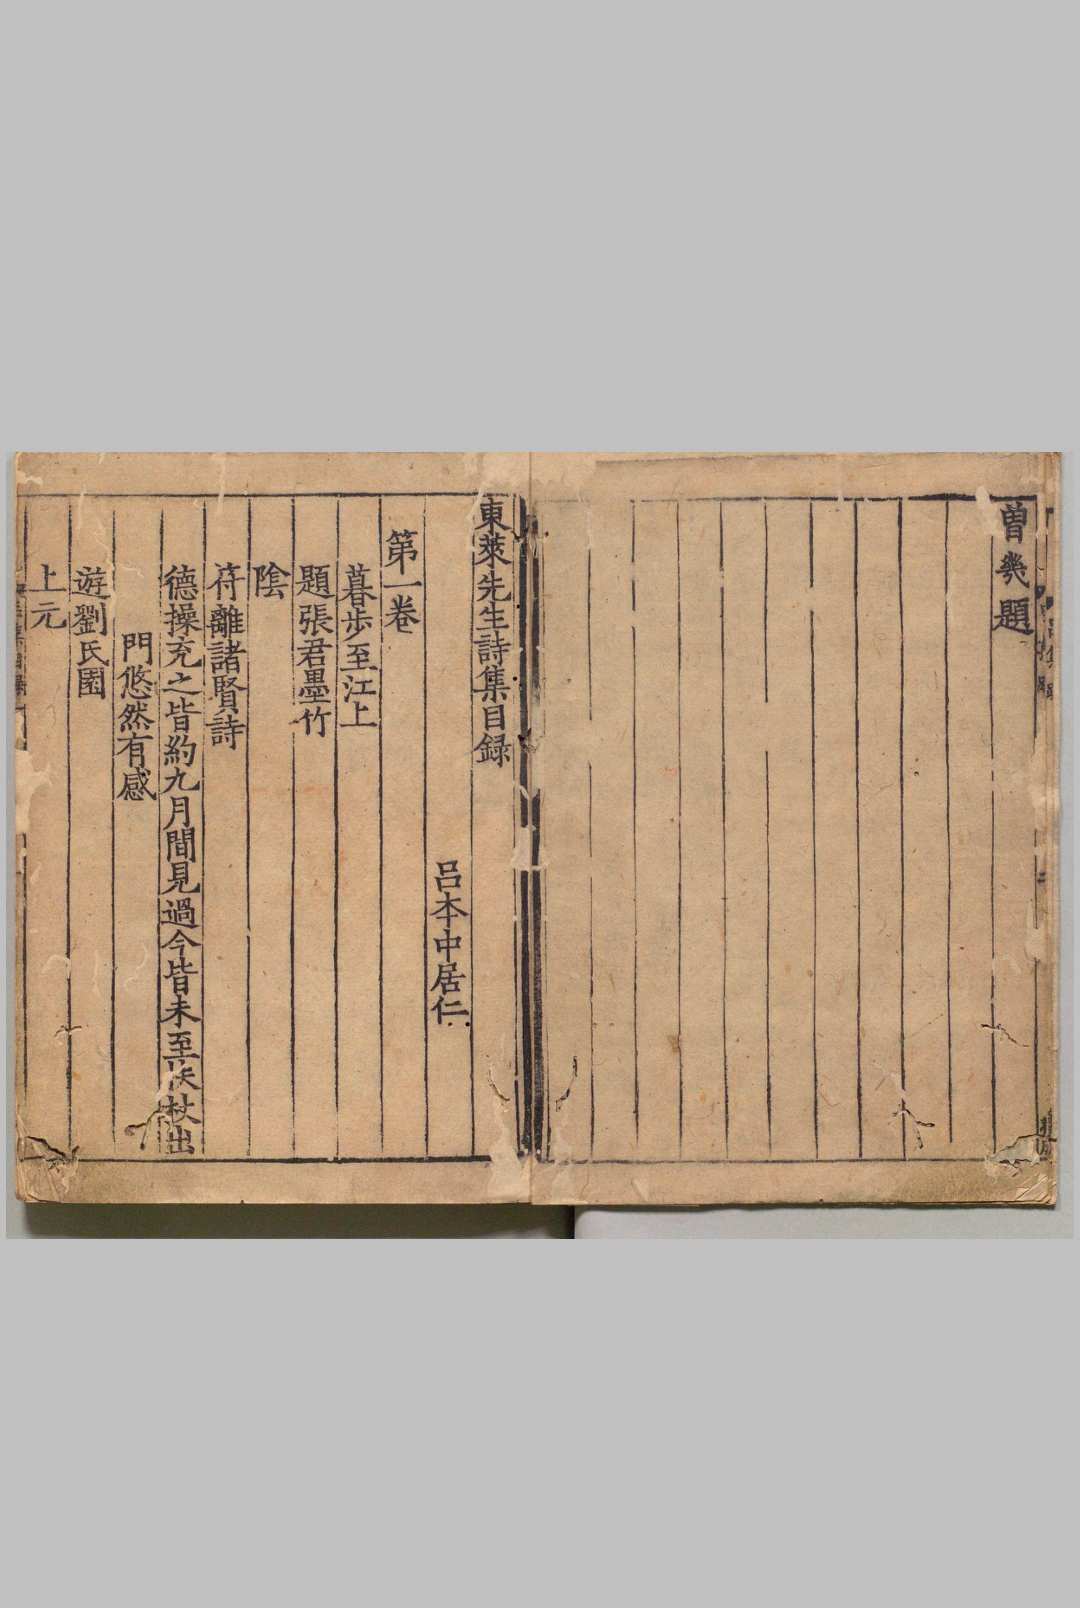 曽幾題
東萊先生詩集目録
吕本中居仁
第一卷
暮歩至江上
題張君墨竹
陰
符離諸賢詩
德操充之皆約九月間見過今皆未至扶杖出
門悠然有感
遊劉氏園
上元